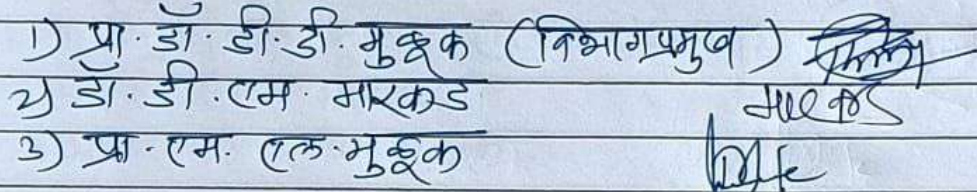 1) प्रा. डॉ. डी. डी. मुळूक (विभागप्रमुख)
2) डॉ. डी. एम. मारकड
3) प्रा. एम. एल. मुळूक